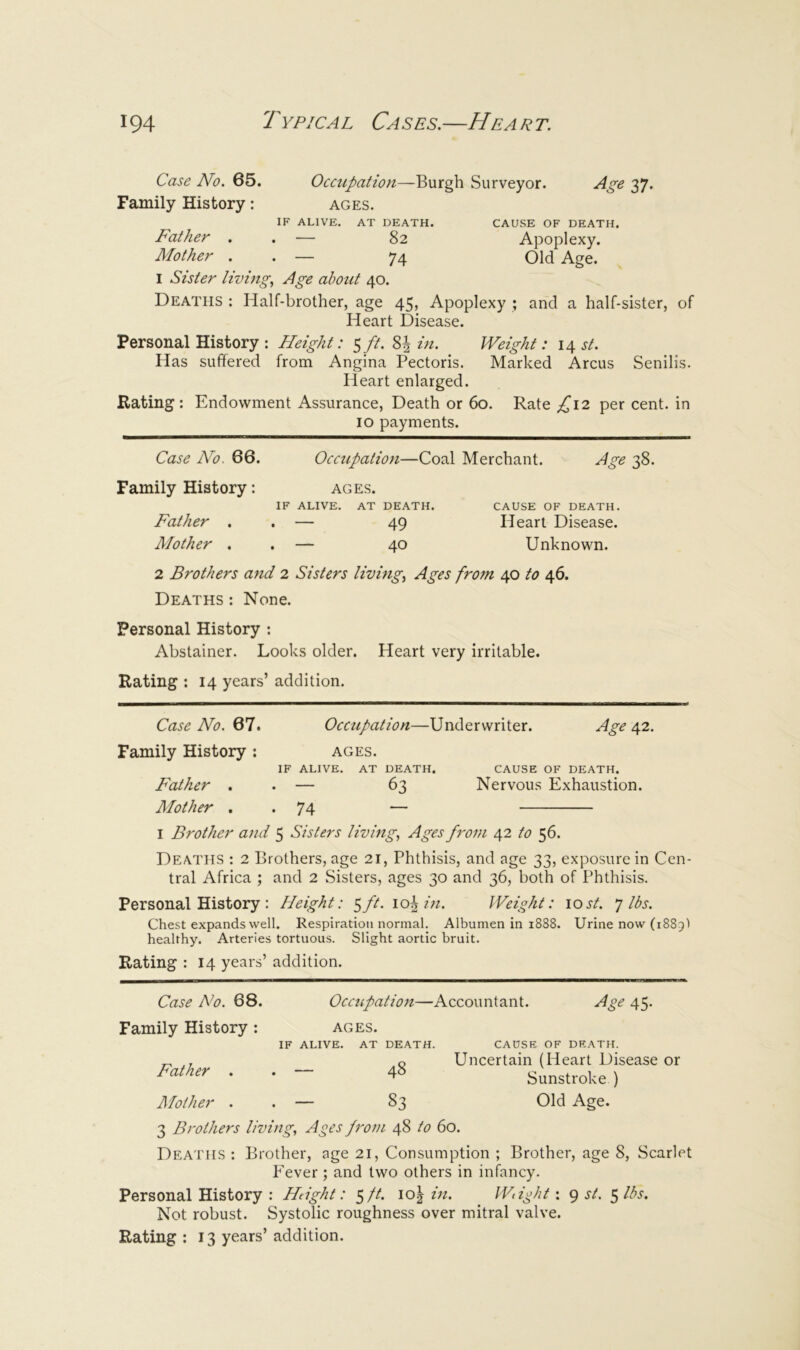 194 Typical Cases.—Heart.
Case No. 65. Occupation—Burgh Surveyor. Age 37.
Family History: AGES.
IF ALIVE. AT DEATH. CAUSE OF DEATH.
Father . . — 82 Apoplexy.
Mother . . — 74 Old Age.
1 Sister living, Age about 40.
Deaths : Half-brother, age 45, Apoplexy ; and a half-sister, of
Heart Disease.
Personal History : Height: 5 ft. 8½ in. Weight: 14 st.
Has suffered from Angina Pectoris. Marked Arcus Senilis.
Heart enlarged.
Rating : Endowment Assurance, Death or 60. Rate £12 per cent. in
10 payments.
Case No. 66. Occupation—Coal Merchant. Age 38.
Family History: AGES.
IF ALIVE. AT DEATH. CAUSE OF DEATH.
Father . . — 49 Heart Disease.
Mother . . — 40 Unknown.
2 Brothers and 2 Sisters living, Ages from 40 to 46.
Deaths : None.
Personal History :
Abstainer. Looks older. Heart very irritable.
Rating : 14 years' addition.
Case No. 67. Occupation—Underwriter. Age 42.
Family History : AGES.
IF ALIVE. AT DEATH. CAUSE OF DEATH.
Father . . — 63 Nervous Exhaustion.
Mother . . 74 — ———
1 Brother and 5 Sisters living, Ages from 42 to 56.
Deaths : 2 Brothers, age 21, Phthisis, and age 33, exposure in Cen-
tral Africa ; and 2 Sisters, ages 30 and 36, both of Phthisis.
Personal History : Height: 5 ft. 10½ in. Weight: 10 st. 7 lbs.
Chest expands well. Respiration normal. Albumen in 1888. Urine now (1889)
healthy. Arteries tortuous. Slight aortic bruit.
Rating : 14 years' addition.
Case No. 68. Occupation—Accountant. Age 45.
Family History : AGES.
IF ALIVE. AT DEATH. CAUSE OF DEATH.
Father . . — 48 Uncertain (Heart Disease or
Sunstroke.)
Mother . . — 83 Old Age.
3 Brothers living, Ages from 48 to 60.
Deaths : Brother, age 21, Consumption ; Brother, age 8, Scarlet
Fever ; and two others in infancy.
Personal History : Height: 5 ft. 10½ in. Weight : 9 st. 5 lbs.
Not robust. Systolic roughness over mitral valve.
Rating : 13 years' addition.